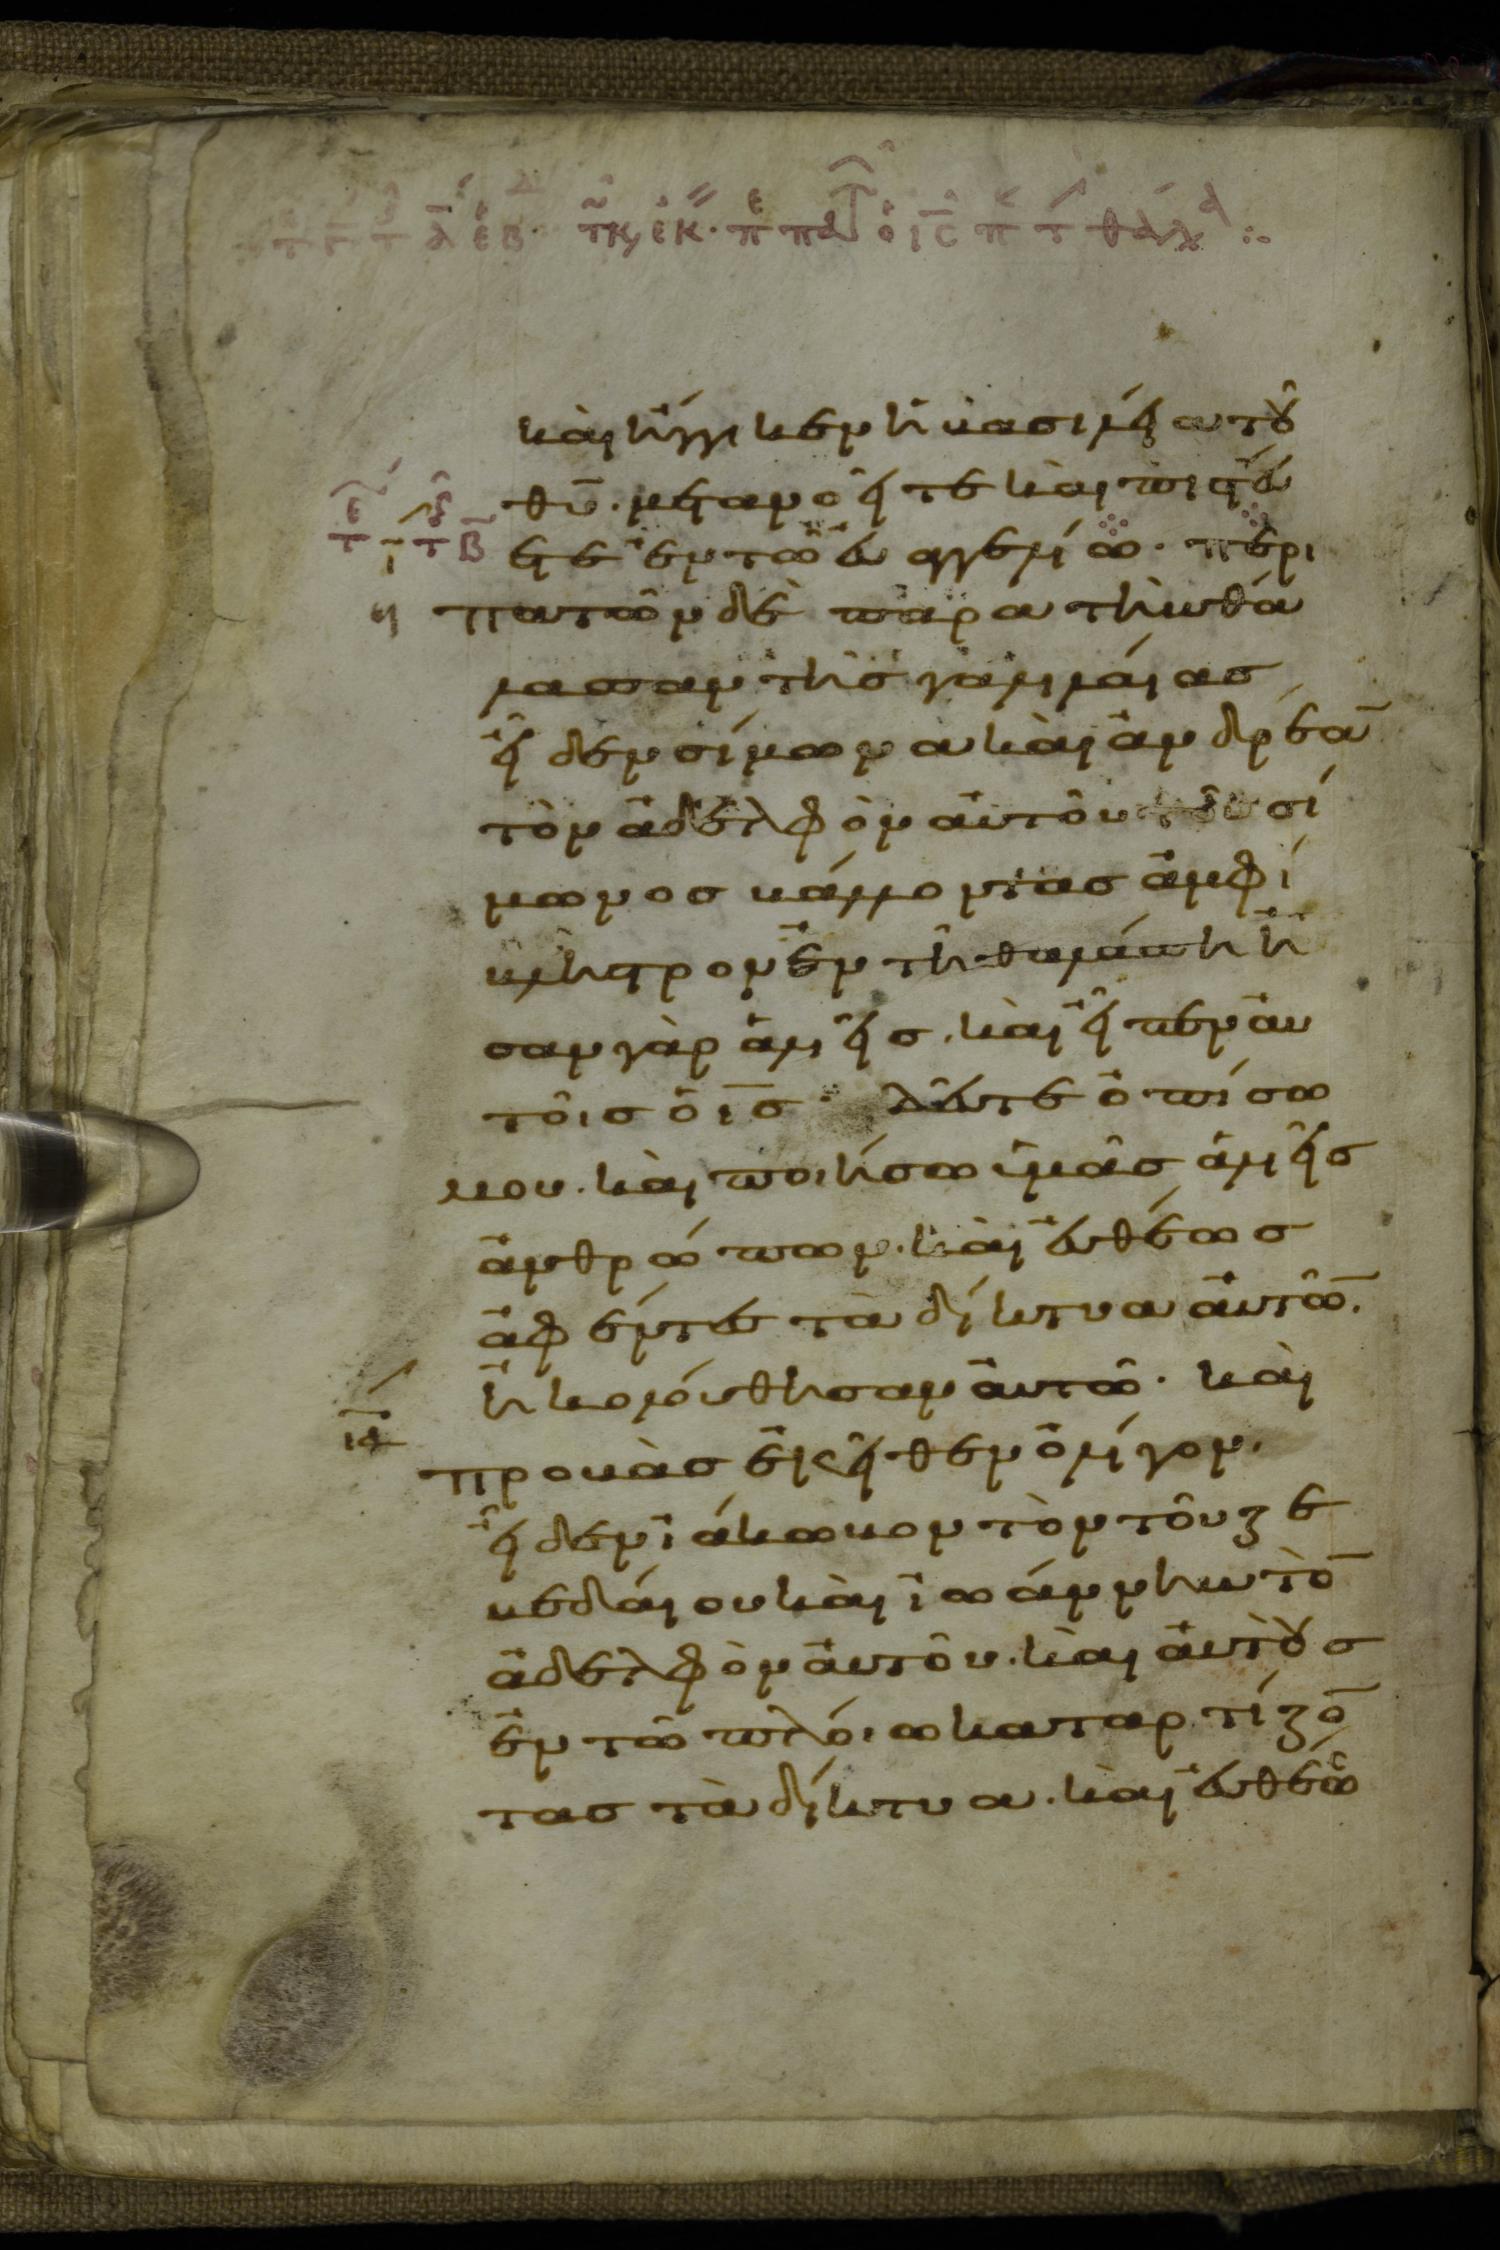 καὶ ἤγγικεν ἡ βασιλεία τοῦ
θυ̅. μετανοεῖτε καὶ πιστεύ
ετε ἐν τῶ εὐαγγελίω. περι
πατῶν δὲ παρὰ τὴν θά
λασσαν τῆς γαλιλαίας
εἶδεν σίμωνα καὶ ἀνδρέα̅
τὸν ἀδελφὸν αὐτοῦ τοῦ σί
μωνος βάλλοντας ἀμφί
βληστρον ἐν τῆ θαλάσση ἦ
σαν γὰρ ἁλιεῖς. καὶ εἶπεν αὐ
τοῖς ὁ ι̅ς̅. δεῦτε ὀπίσω
μου. καὶ ποιήσω ὑμᾶς ἁλιεῖς
ἀνθρώπων. καὶ εὐθέως
ἀφέντες τὰ δίκτυα αὐτῶ̅.
ἠκολούθησαν αὐτῶ. καὶ
ια
προβὰς ἐκεῖθεν ὀλίγον.
εἶδεν ἰάκωβον τὸν τοῦ ζε
βεδαίου καὶ ἰωάννην τὸ̅
ἀδελφὸν αὐτοῦ. καὶ αὐτοὺς
ἐν τῶ πλοίω καταρτίζο̅
τας τὰ δίκτυα. καὶ εὐθέως